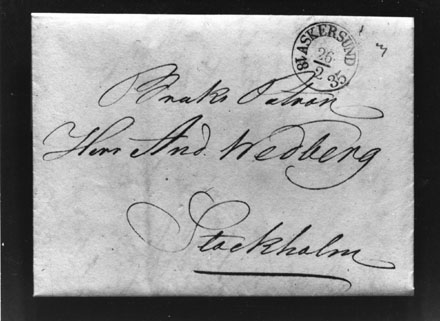 ASKERSUND
26
2
18 35
Bruks Patron
Herr And. Wedberg
Stockholm